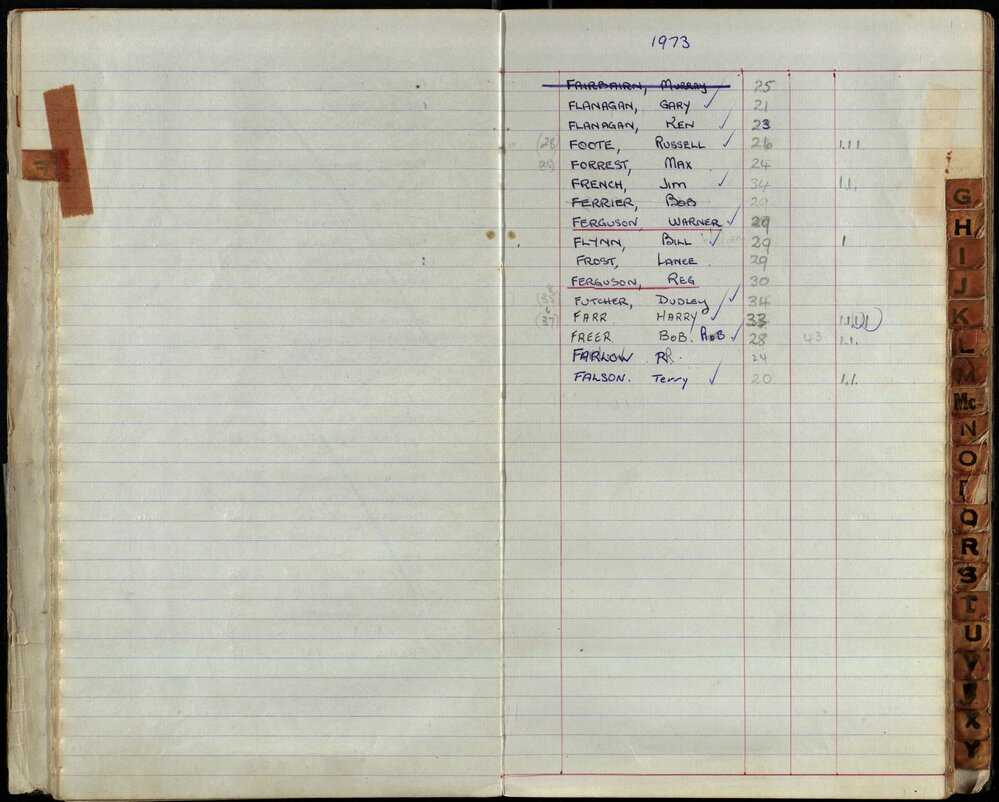 1973
FAIRBAIRN, MURRAY 25
FLANAGAN, GARY ✓ 21
FLANAGAN, KEN ✓ 23
(28) FOOTE, RUSSELL ✓ 26 1.1.1
(25) FORREST, MAX 24
FRENCH, Jim ✓ 34 1.1.
FERRIER, BOB 29
FERGUSON, WARNER ✓ 29
FLYNN, BILL ✓ 29 1
FROST, LANCE 29
FERGUSON, REG 30
FUTCHER, DUDLEY ✓ 34
(37) FARR HARRY ✓ 33 1.1.1.1
FREER BOB. ROB ✓ 28 43 1.1.
FARLOW R 24
FALSON. Terry ✓ 20 1.1.
G
H
I
J
K
L
M
Mc
N
O
Q
R
S
T
U
V
X
Y